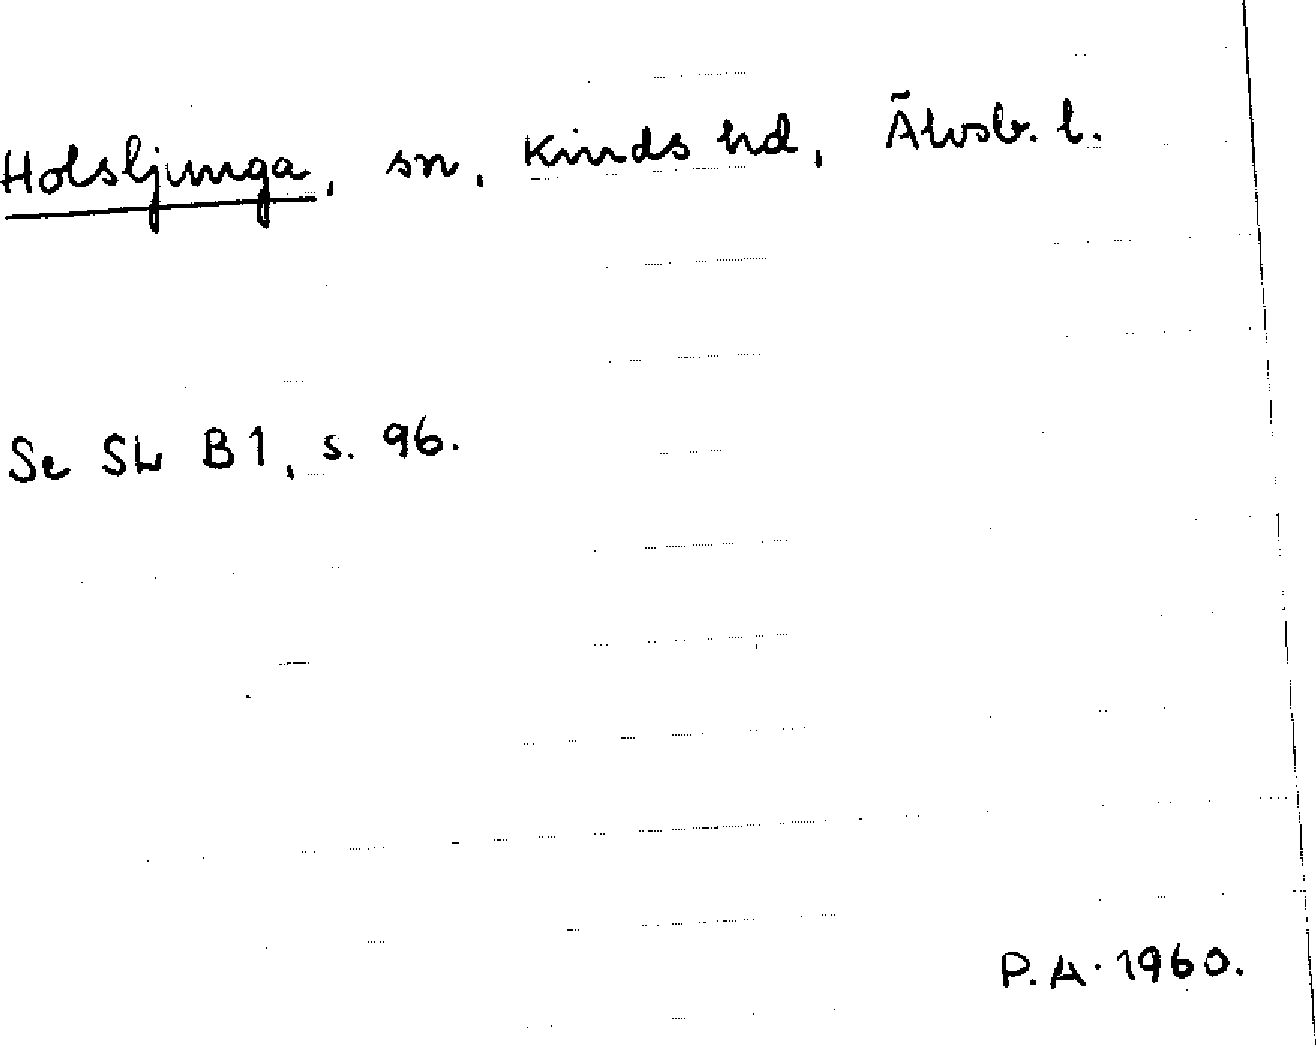 Holsljunga, sn, Kinds hd, Älvsb. l.
Se SH B1, s. 96.
P.A. 1960.